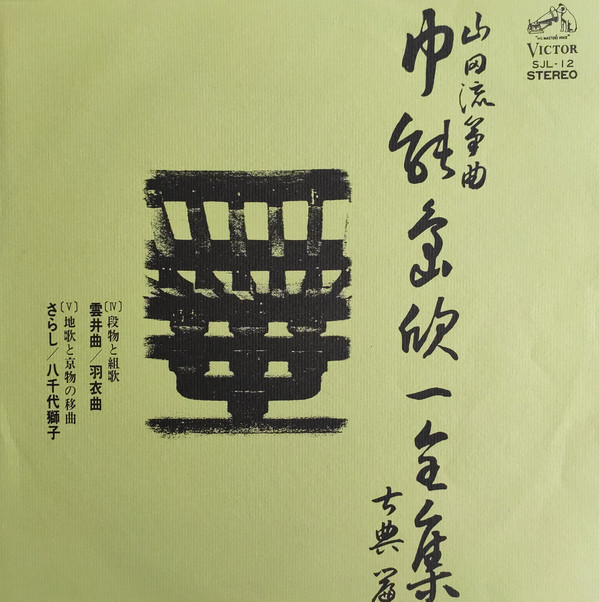 山田流箏曲
中能島欣一全集
古典篇
"HIS MASTER'S VOICE"
VICTOR
SJL-12
STEREO
〔Ⅳ〕段物と組歌
雲井曲／羽衣曲
〔Ⅴ〕地歌と京物の移曲
さらし／八千代獅子